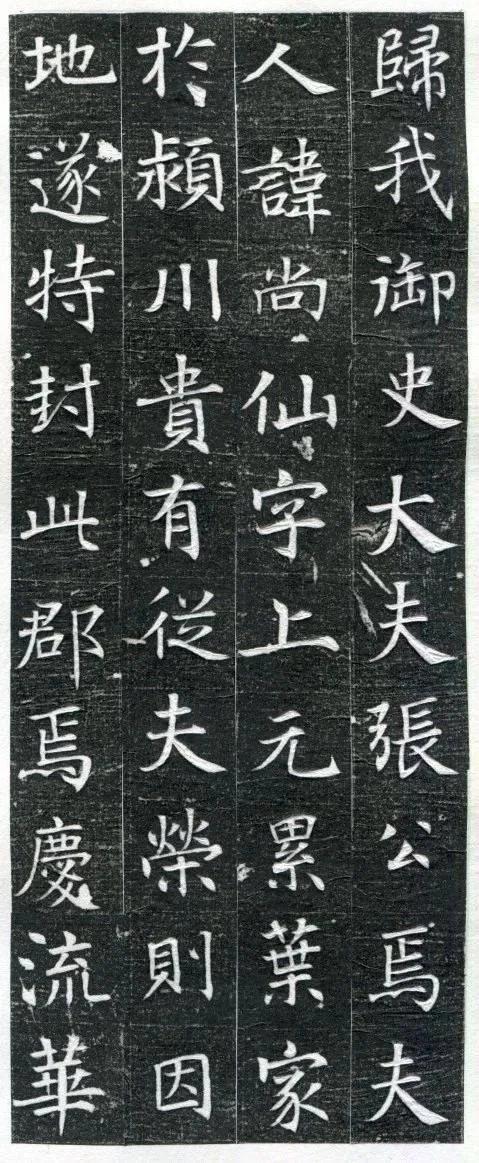 歸我御史大夫張公焉夫
人諱尚仙字上元累葉家
於潁川貴有從夫榮則因
地遂特封此郡焉慶流華